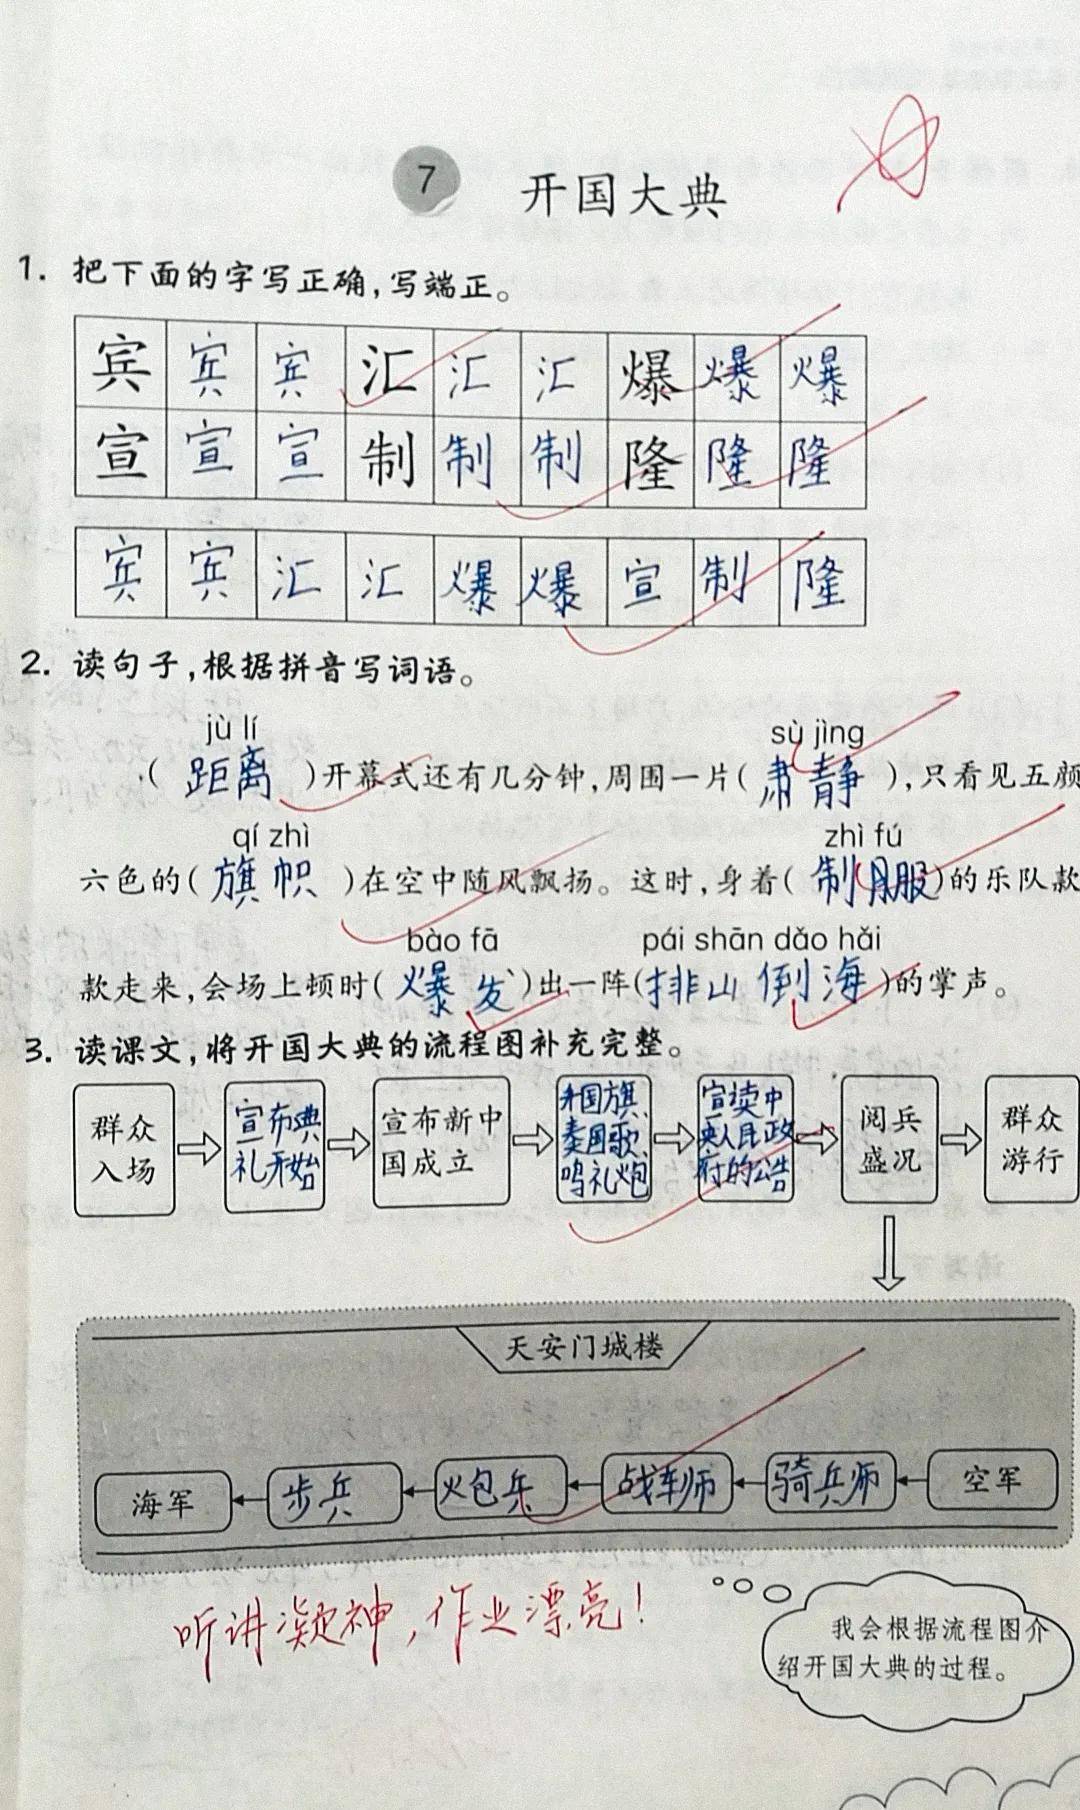 7 开国大典
1. 把下面的字写正确,写端正。
宾 宾 宾 汇 汇 汇 爆 爆 爆
宣 宣 宣 制 制 制 隆 隆 隆
宾 宾 汇 汇 爆 爆 宣 制 隆
2. 读句子,根据拼音写词语。
jù lí sù jìng
( 距离 )开幕式还有几分钟,周围一片( 肃静 ),只看见五颜
qí zhì zhì fú
六色的( 旗帜 )在空中随风飘扬。这时,身着( 制服 )的乐队款
bào fā pái shān dǎo hǎi
款走来,会场上顿时( 爆发 )出一阵( 排山倒海 )的掌声。
3. 读课文,将开国大典的流程图补充完整。
群众
入场
宣布典
礼开始
宣布新中
国成立
升国旗、
奏国歌、
鸣礼炮
宣读中
央人民政
府的公告
阅兵
盛况
群众
游行
天安门城楼
海军 步兵 炮兵 战车师 骑兵师 空军
听讲凝神,作业漂亮!
我会根据流程图介
绍开国大典的过程。